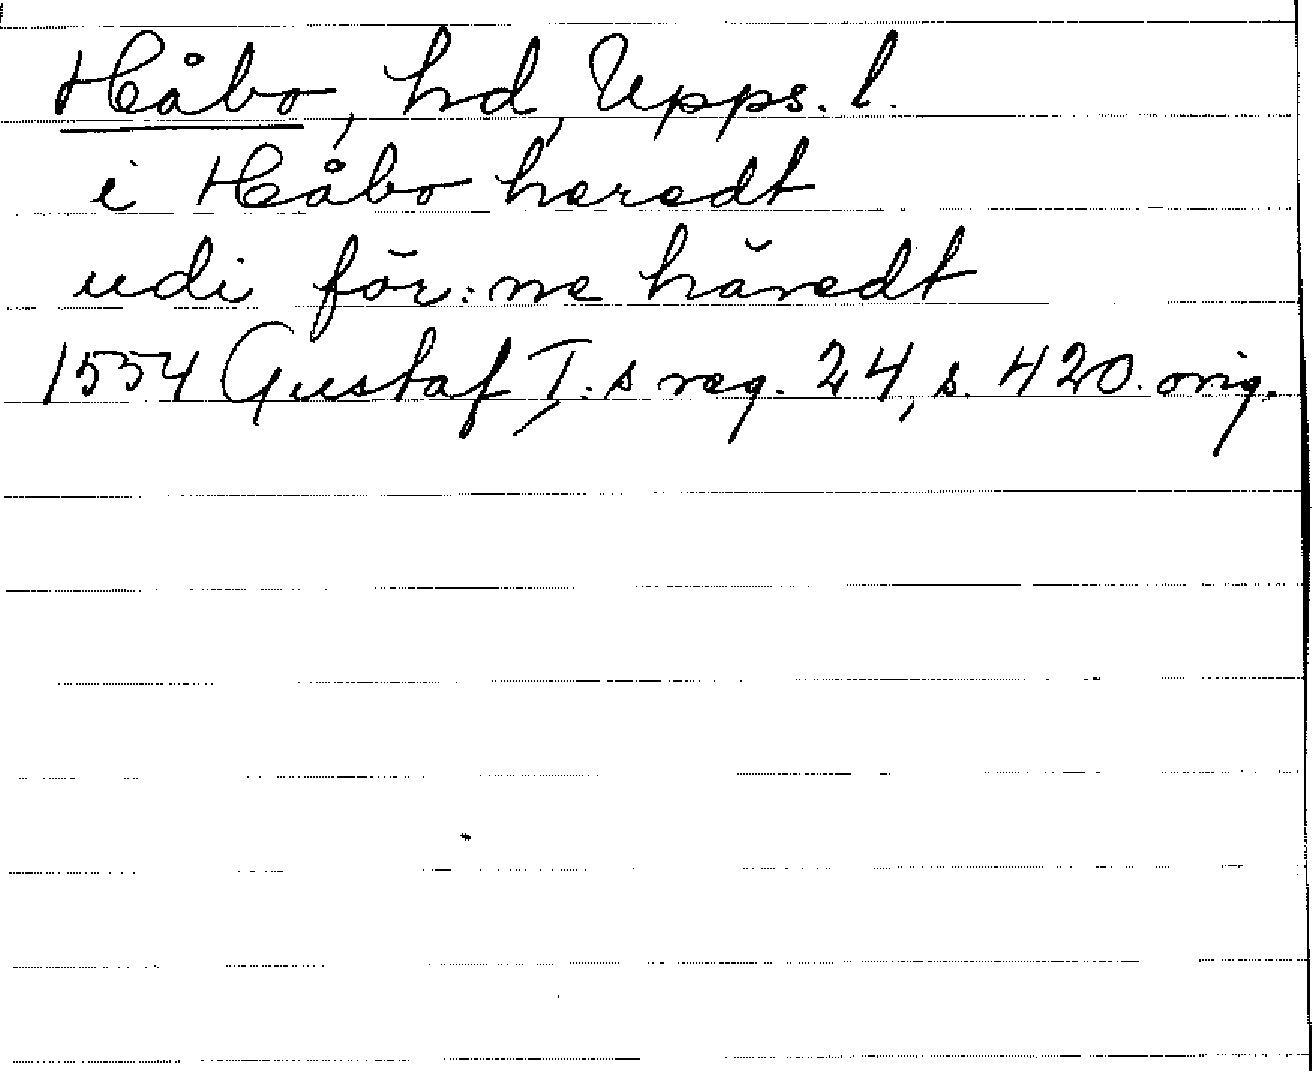 Håbo, hd, Upps. l.
i Håbo heredt
udi för:ne häredt
1554 Gustaf I:s reg. 24, s. 420. orig.